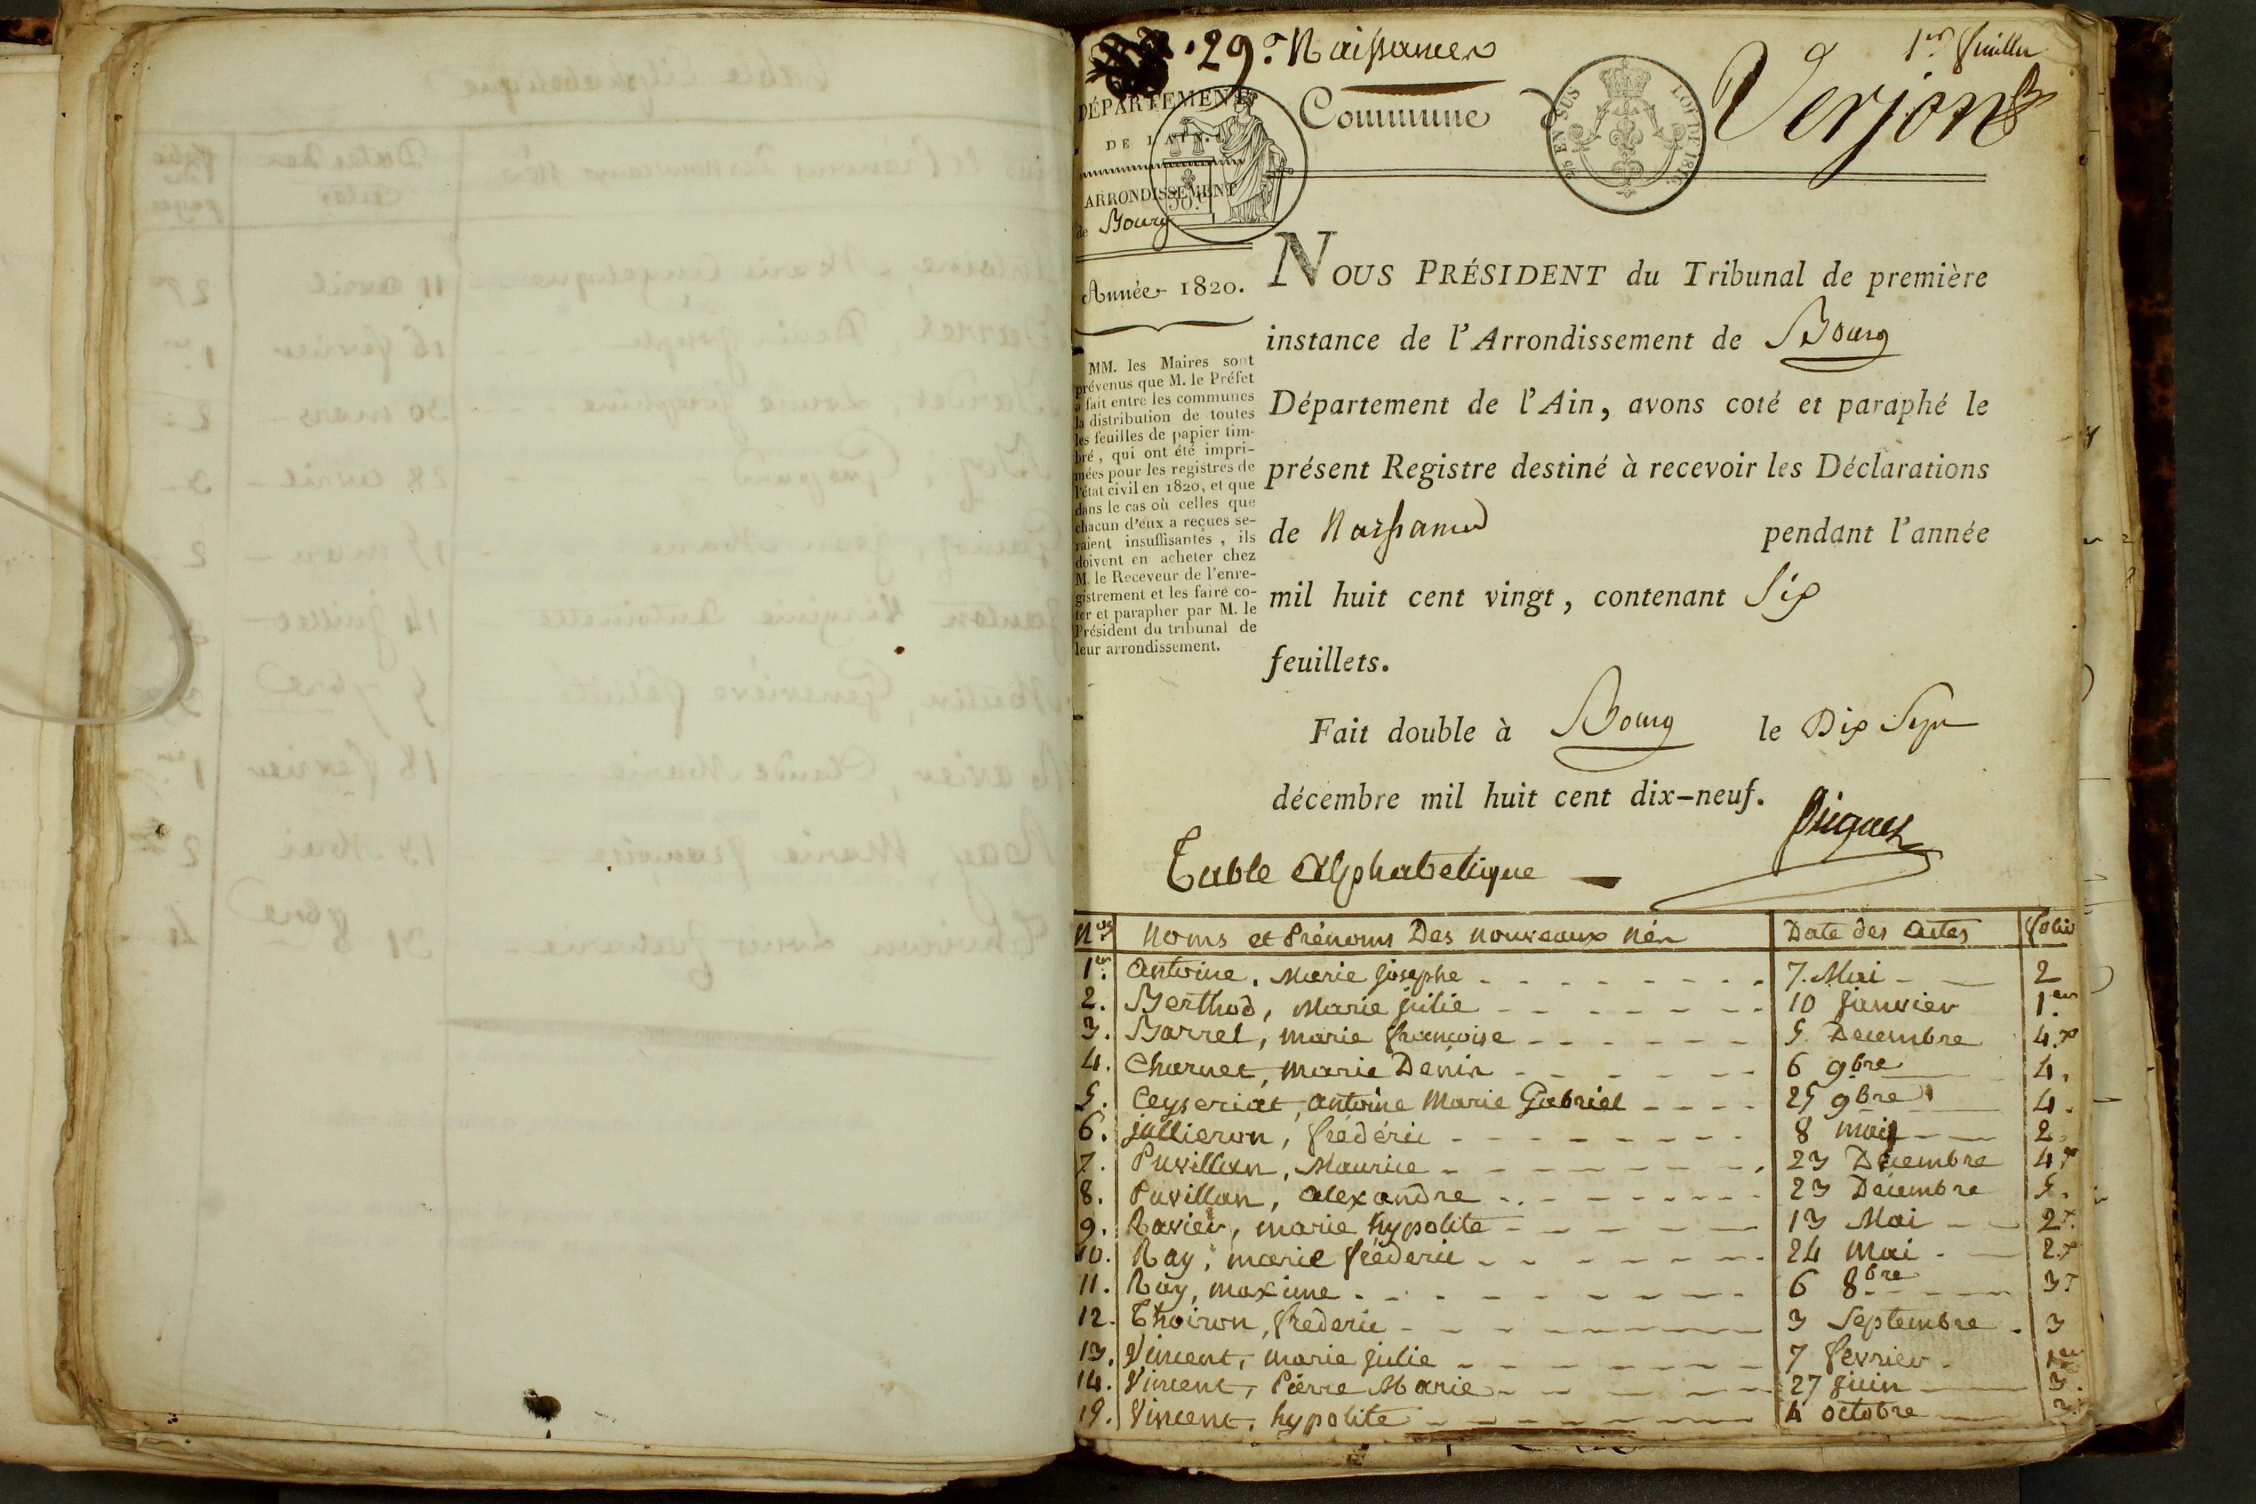 29. Naissances
1er feuillet
DÉPARTEMENT
DE L'AIN.
ARRONDISSEMENT
de Bourg
Commune de Verjon
25 EN SUS
LOI DE 1816.
Année 1820.
MM. les Maires sont
prévenus que M. le Préfet
a fait entre les communes
la distribution de toutes
les feuilles de papier tim-
bré, qui ont été impri-
mées pour les registres de
l'état civil en 1820, et que
dans le cas où celles que
chacun d'eux a reçues se-
raient insuffisantes, ils
doivent en acheter chez
M. le Receveur de l'enre-
gistrement et les faire co-
ter et parapher par M. le
Président du tribunal de
leur arrondissement.
NOUS PRÉSIDENT du Tribunal de première
instance de l'Arrondissement de Bourg
Département de l'Ain, avons coté et paraphé le
présent Registre destiné à recevoir les Déclarations
de Naissances pendant l'année
mil huit cent vingt, contenant Six
feuillets.
Fait double à Bourg le Dix Sept
décembre mil huit cent dix-neuf.
Table Alphabetique
Nos Noms et Prénoms Des nouveaux Nés Date des Actes folio
1er. Antoine, Marie josephe 7. Mai 2
2. Berthod, Marie julie 10 Janvier 1er
3. Barret, marie françoise 5 Decembre 4.
4. Charnet, marie Denis 6 9bre 4.
5. Ceyseriat, antoine Marie Gabriel 25 9bre 4.
6. jullieron, frédéric 8 mai 2
7. Puvillan, Maurice 23 Decembre 4.
8. Puvillan, alexandre 23 Decembre 5.
9. Ravier, marie hypolite 13 Mai 2.
10. Ray, marie fréderic 24 Mai 2.
11. Ray, maxime 6 8bre 3
12. Thoiron, frederic 3 Septembre 3
13. Vincent, marie julie 7 fevrier 1er
14. Vincent, Pierre Marie 27 juin 3.
15. Vincent, hypolite 4 octobre 3